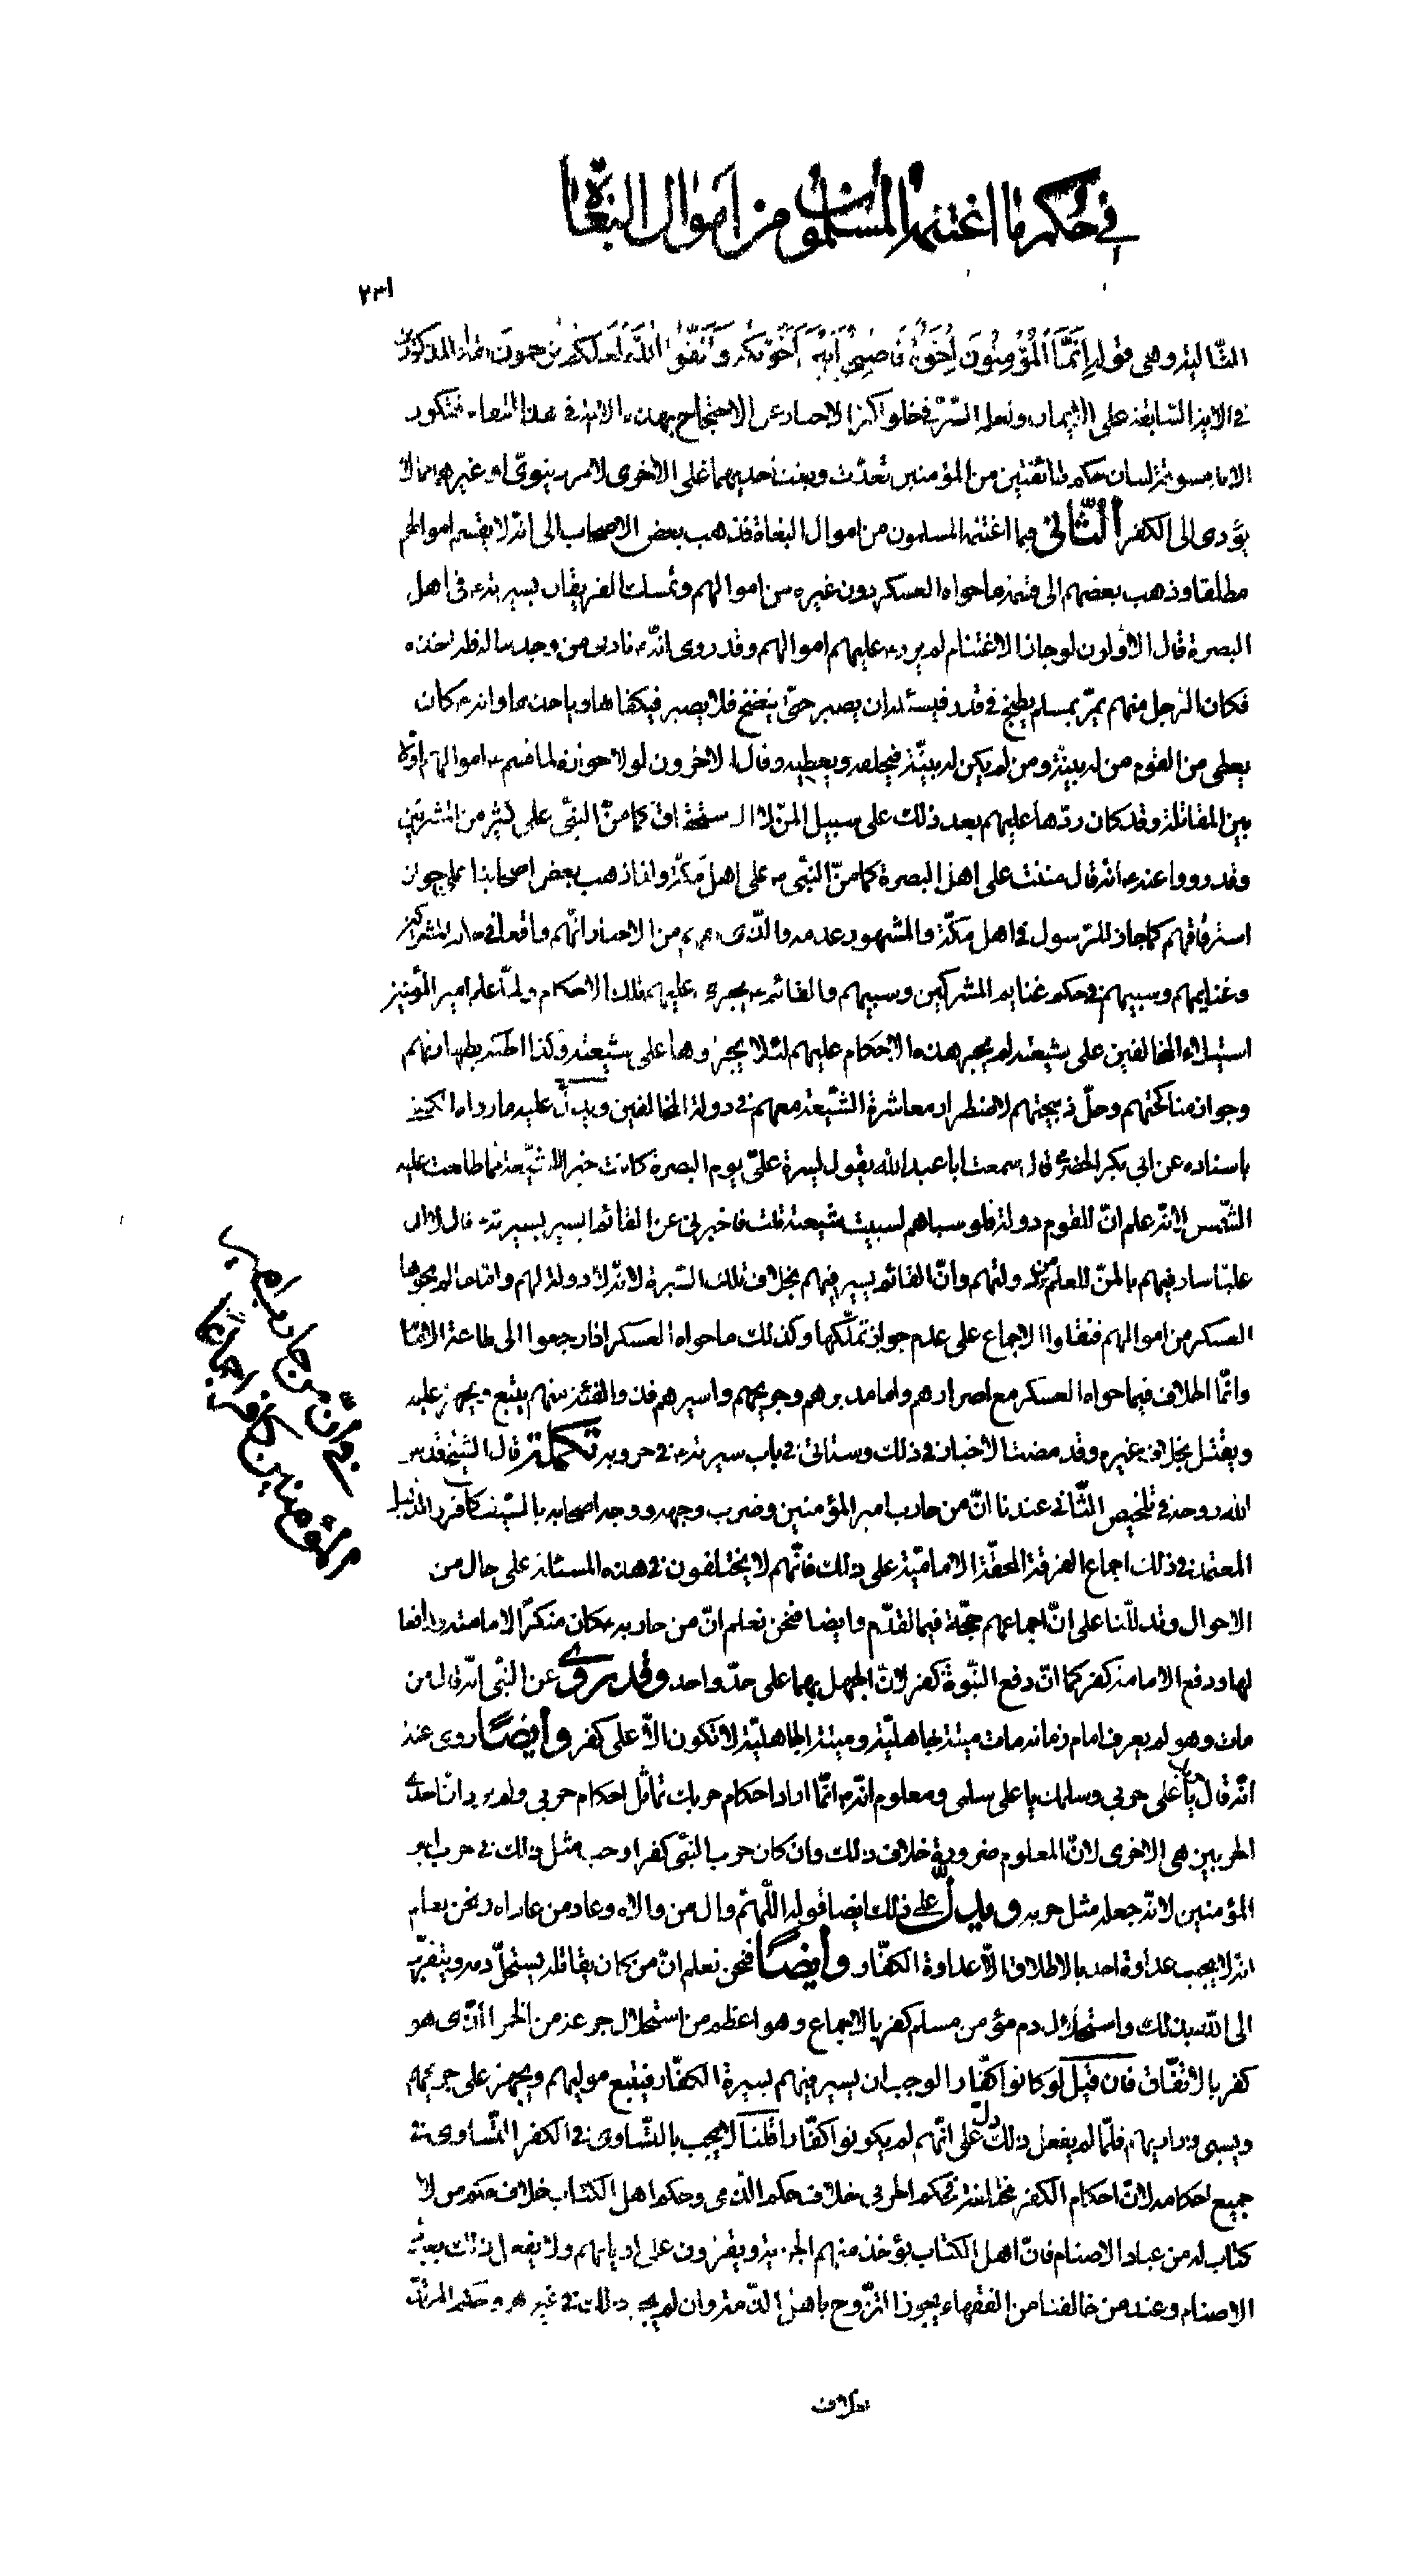 في حكم ما اغتنمه المسلمون من اموال البغاة
٢٣١
الثالثة وهي قوله إِنَّمَا الْمُؤْمِنُونَ إِخْوَةٌ فَأَصْلِحُوا بَيْنَ أَخَوَيْكُمْ وَاتَّقُوا اللَّهَ لَعَلَّكُمْ تُرْحَمُونَ المذكورين
في الاية السابقة على الايمان ولعله السر في خلو اكثر الاخبار عن الاحتجاج بهذه الاية في هذا المقام فتكون
الاية مسوقة لبيان حكم طائفتين من المؤمنين تعدت وبغت احديهما على الاخرى لامر دنيوي او غيره مما لا
يؤدي الى الكفر الثاني فيما اغتنمه المسلمون من اموال البغاة فذهب بعض الاصحاب الى انه لا يقسم اموالهم
مطلقا وذهب بعضهم الى قسمة ما حواه العسكر دون غيره من اموالهم وتمسك الفريقان بسيرته في اهل
البصرة قال الاولون لو جاز الاغتنام لم يرد عليهم اموالهم وقد روي انه نادى من وجد ماله فله اخذه
فكان الرجل منهم يمر بمسلم يطبخ في قدر فيسئله ان يصبر حتى ينضج فلا يصبر فيكفاها وياخذها وانه كان
يعطي من القوم من له بينة ومن لم يكن له بينة فيحلفه ويعطيه وقال الاخرون لولا جوازه لما قسم اموالهم اولا
بين المقاتلة وقد كان ردها عليهم بعد ذلك على سبيل المن لا الاستحقاق كما من النبي على كثير من المشركين
وقد رووا عنه انه قال مننت على اهل البصرة كما من النبي ص على اهل مكة ولذا ذهب بعض اصحابنا على جواز
استرقاقهم كما جاز للرسول في اهل مكة والمشهور عدمه والذي من الاخبار انهم واقعا في حكم المشركين
وغنايمهم وسبيهم في حكم غنايم المشركين وسبيهم والقائم يجري عليهم تلك الاحكام ولما علم امير المؤمنين
استيلاء المخالفين على شيعته لم يجر هذه الاحكام عليهم لئلا يجروها على شيعته وكذا الحكم بطهارتهم
وجواز مناكحتهم وحل ذبيحتهم لاضطرار معاشرة الشيعة معهم في دولة المخالفين ويدل عليه ما رواه الكليني
باسناده عن ابي بكر الحضرمي قال سمعت ابا عبد الله يقول لسيرة علي يوم البصرة كانت خيرا لشيعته مما طلعت عليه
الشمس لانه علم ان للقوم دولة فلو سباهم لسبيت شيعته قلت فاخبرني عن القائم ايسير بسيرته قال لا ان
عليا سار فيهم بالمن للعلم من دولتهم وان القائم يسير فيهم بخلاف تلك السيرة لانه لا دولة لهم واما ما لم يحوها
العسكر من اموالهم فنقلوا الاجماع على عدم جواز تملكها وكذلك ما حواه العسكر اذا رجعوا الى طاعة الامام
وانما الخلاف فيما حواه العسكر مع اصرارهم واما مدبرهم وجريحهم واسيرهم فذو الفئة منهم يتبع ويجهز عليه
ويقتل بخلاف غيره وقد مضت الاخبار في ذلك وستاتي في باب سيرته في حروبه تكملة قال الشيخ قدس
الله روحه في تلخيص الثاني عندنا ان من حارب امير المؤمنين وضرب وجهه ووجه اصحابه بالسيف كافر والدليل
المعتمد في ذلك اجماع الفرقة المحقة الامامية على ذلك فانهم لا يختلفون في هذه المسئلة على حال من
الاحوال وقد دللنا على ان اجماعهم حجة فيما تقدم وايضا فنحن نعلم ان من حاربه كان منكرا لامامته دافعا
لها ودفع الامامة كفر كما ان دفع النبوة كفر لان الجهل بهما على حد واحد وقد روي عن النبي انه قال من
مات وهو لم يعرف امام زمانه مات ميتة جاهلية وميتة الجاهلية لا تكون الا على كفر وايضا روي عنه
انه قال حربك يا علي حربي وسلمك يا علي سلمي ومعلوم انه انما اراد احكام حربك تماثل احكام حربي ولم يرد ان احدى
الحربين هي الاخرى لان المعلوم ضرورة خلاف ذلك وان كان حرب النبي كفرا وجب مثل ذلك في حرب امير
المؤمنين لانه جعله مثل حربه ويدل على ذلك ايضا قوله اللهم وال من والاه وعاد من عاداه ونحن نعلم
انه لا يجب عداوة احد بالاطلاق الا عداوة الكفار وايضا فنحن نعلم ان من كان يقاتله يستحل دمه ويتقرب
الى الله بذلك واستحلال دم مؤمن مسلم كفر بالاجماع وهو اعظم من استحلال جرعة من الخمر الذي هو
كفر بالاتفاق فان قيل لو كانوا كفارا لوجب ان يسير فيهم بسيرة الكفار فيتبع موليهم ويجهز على جريحهم
ويسبي ذراريهم فلما لم يفعل ذلك دل على انهم لم يكونوا كفارا قلنا لا يجب بالتساوي في الكفر التساوي في
جميع احكامه لان احكام الكفر مختلفة فحكم الحربي خلاف حكم الذمي وحكم اهل الكتاب خلاف حكم من لا
كتاب له من عباد الاصنام فان اهل الكتاب يؤخذ منهم الجزية ويقرون على اديانهم ولا يفعل ذلك بعباد
الاصنام وعند من خالفنا من الفقهاء يجوز التزوج باهل الذمة وان لم يجز ذلك في غيرهم وحكم المرتد
بخلاف
في ان من حارب امير
المؤمنين كافر اجماعا